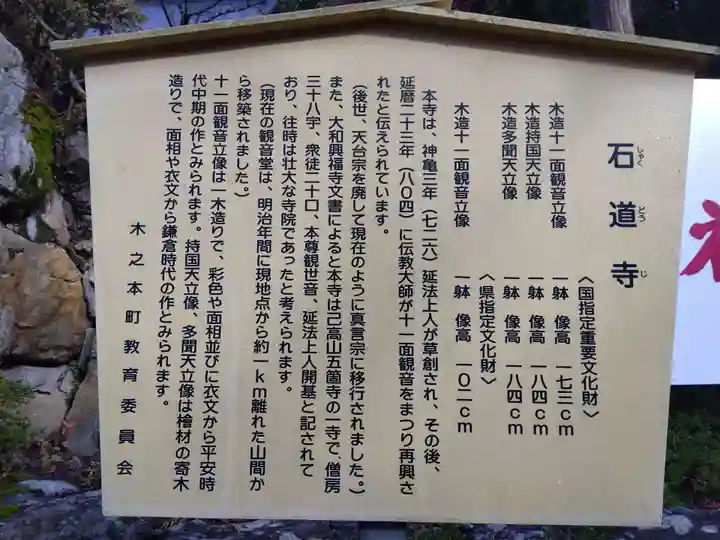 石道寺
しゃく とう じ
〈国指定重要文化財〉
木造十一面観音立像 一躰 像高 一七三cm
木造持国天立像 一躰 像高 一八四cm
木造多聞天立像 一躰 像高 一八四cm
〈県指定文化財〉
木造十一面観音立像 一躰 像高 一〇二cm
本寺は、神亀三年(七二六)延法上人が草創され、その後、
延暦二十三年(八〇四)に伝教大師が十一面観音をまつり再興さ
れたと伝えられています。
(後世、天台宗を廃して現在のように真言宗に移行されました。)
また、大和興福寺文書によると本寺は己高山五箇寺の一寺で、僧房
三十八宇、衆徒二十口、本尊観世音、延法上人開基と記されて
おり、往時は壮大な寺院であったと考えられます。
(現在の観音堂は、明治年間に現地点から約一km離れた山間か
ら移築されました。)
十一面観音立像は一木造りで、彩色や面相並びに衣文から平安時
代中期の作とみられます。持国天立像、多聞天立像は檜材の寄木
造りで、面相や衣文から鎌倉時代の作とみられます。
木之本町教育委員会